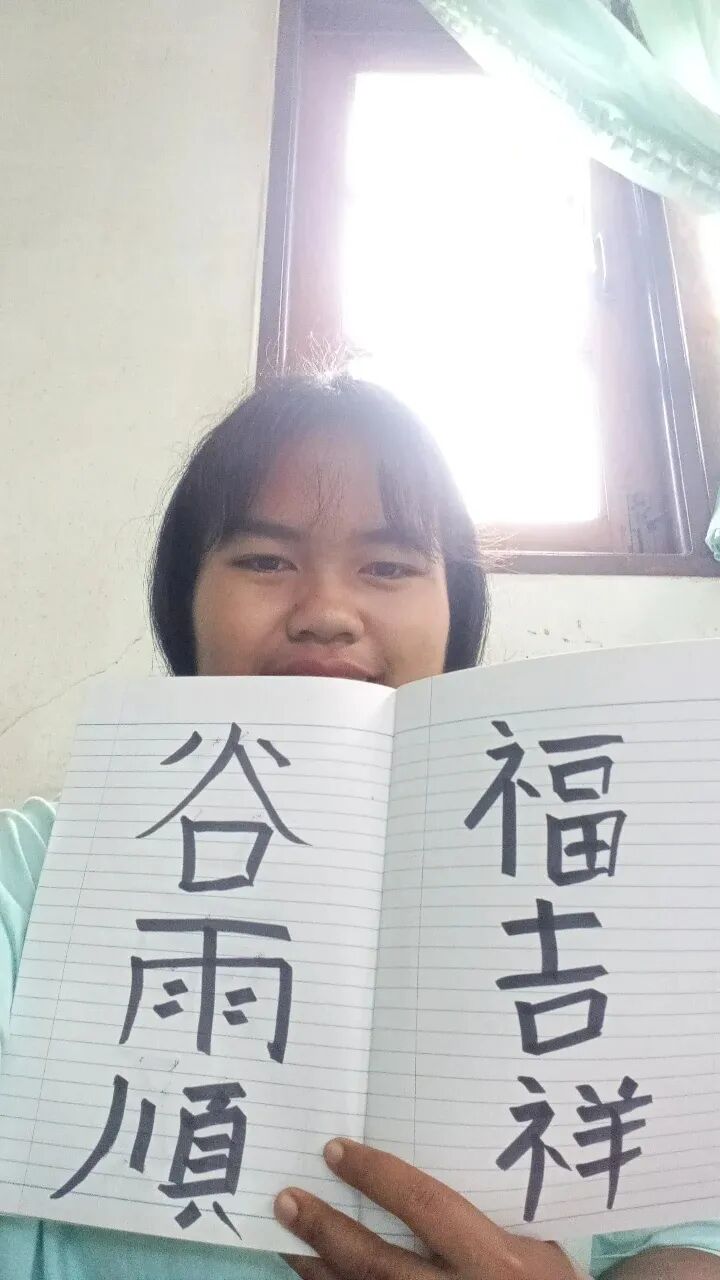 福吉祥
谷雨順